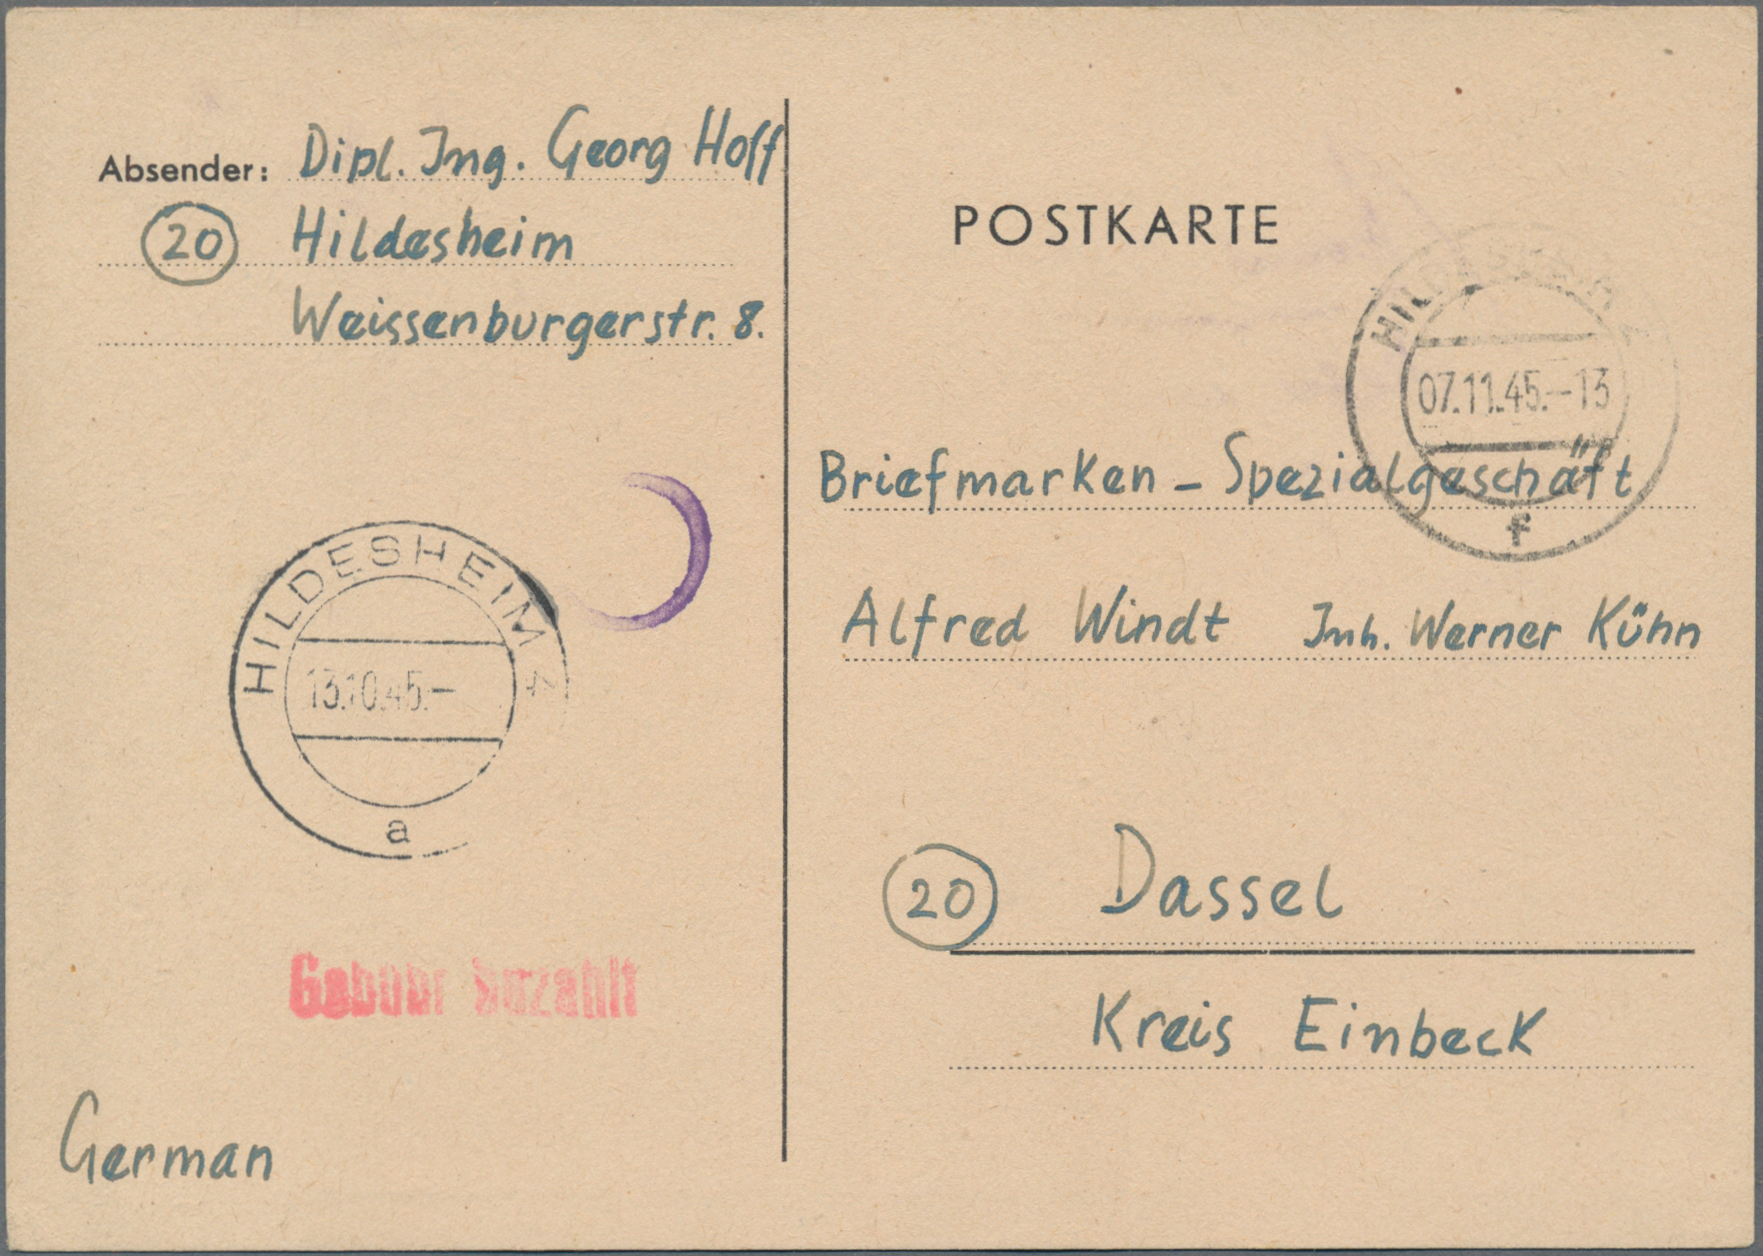 Absender: Dipl. Ing. Georg Hoff
20 Hildesheim
Weissenburgerstr. 8.
POSTKARTE
HILDESHEIM
07.11.45.-13
f
Briefmarken - Spezialgeschäft
Alfred Windt Inh. Werner Kühn
20 Dassel
Kreis Einbeck
HILDESHEIM
13.10.45.-
a
Gebühr bezahlt
German